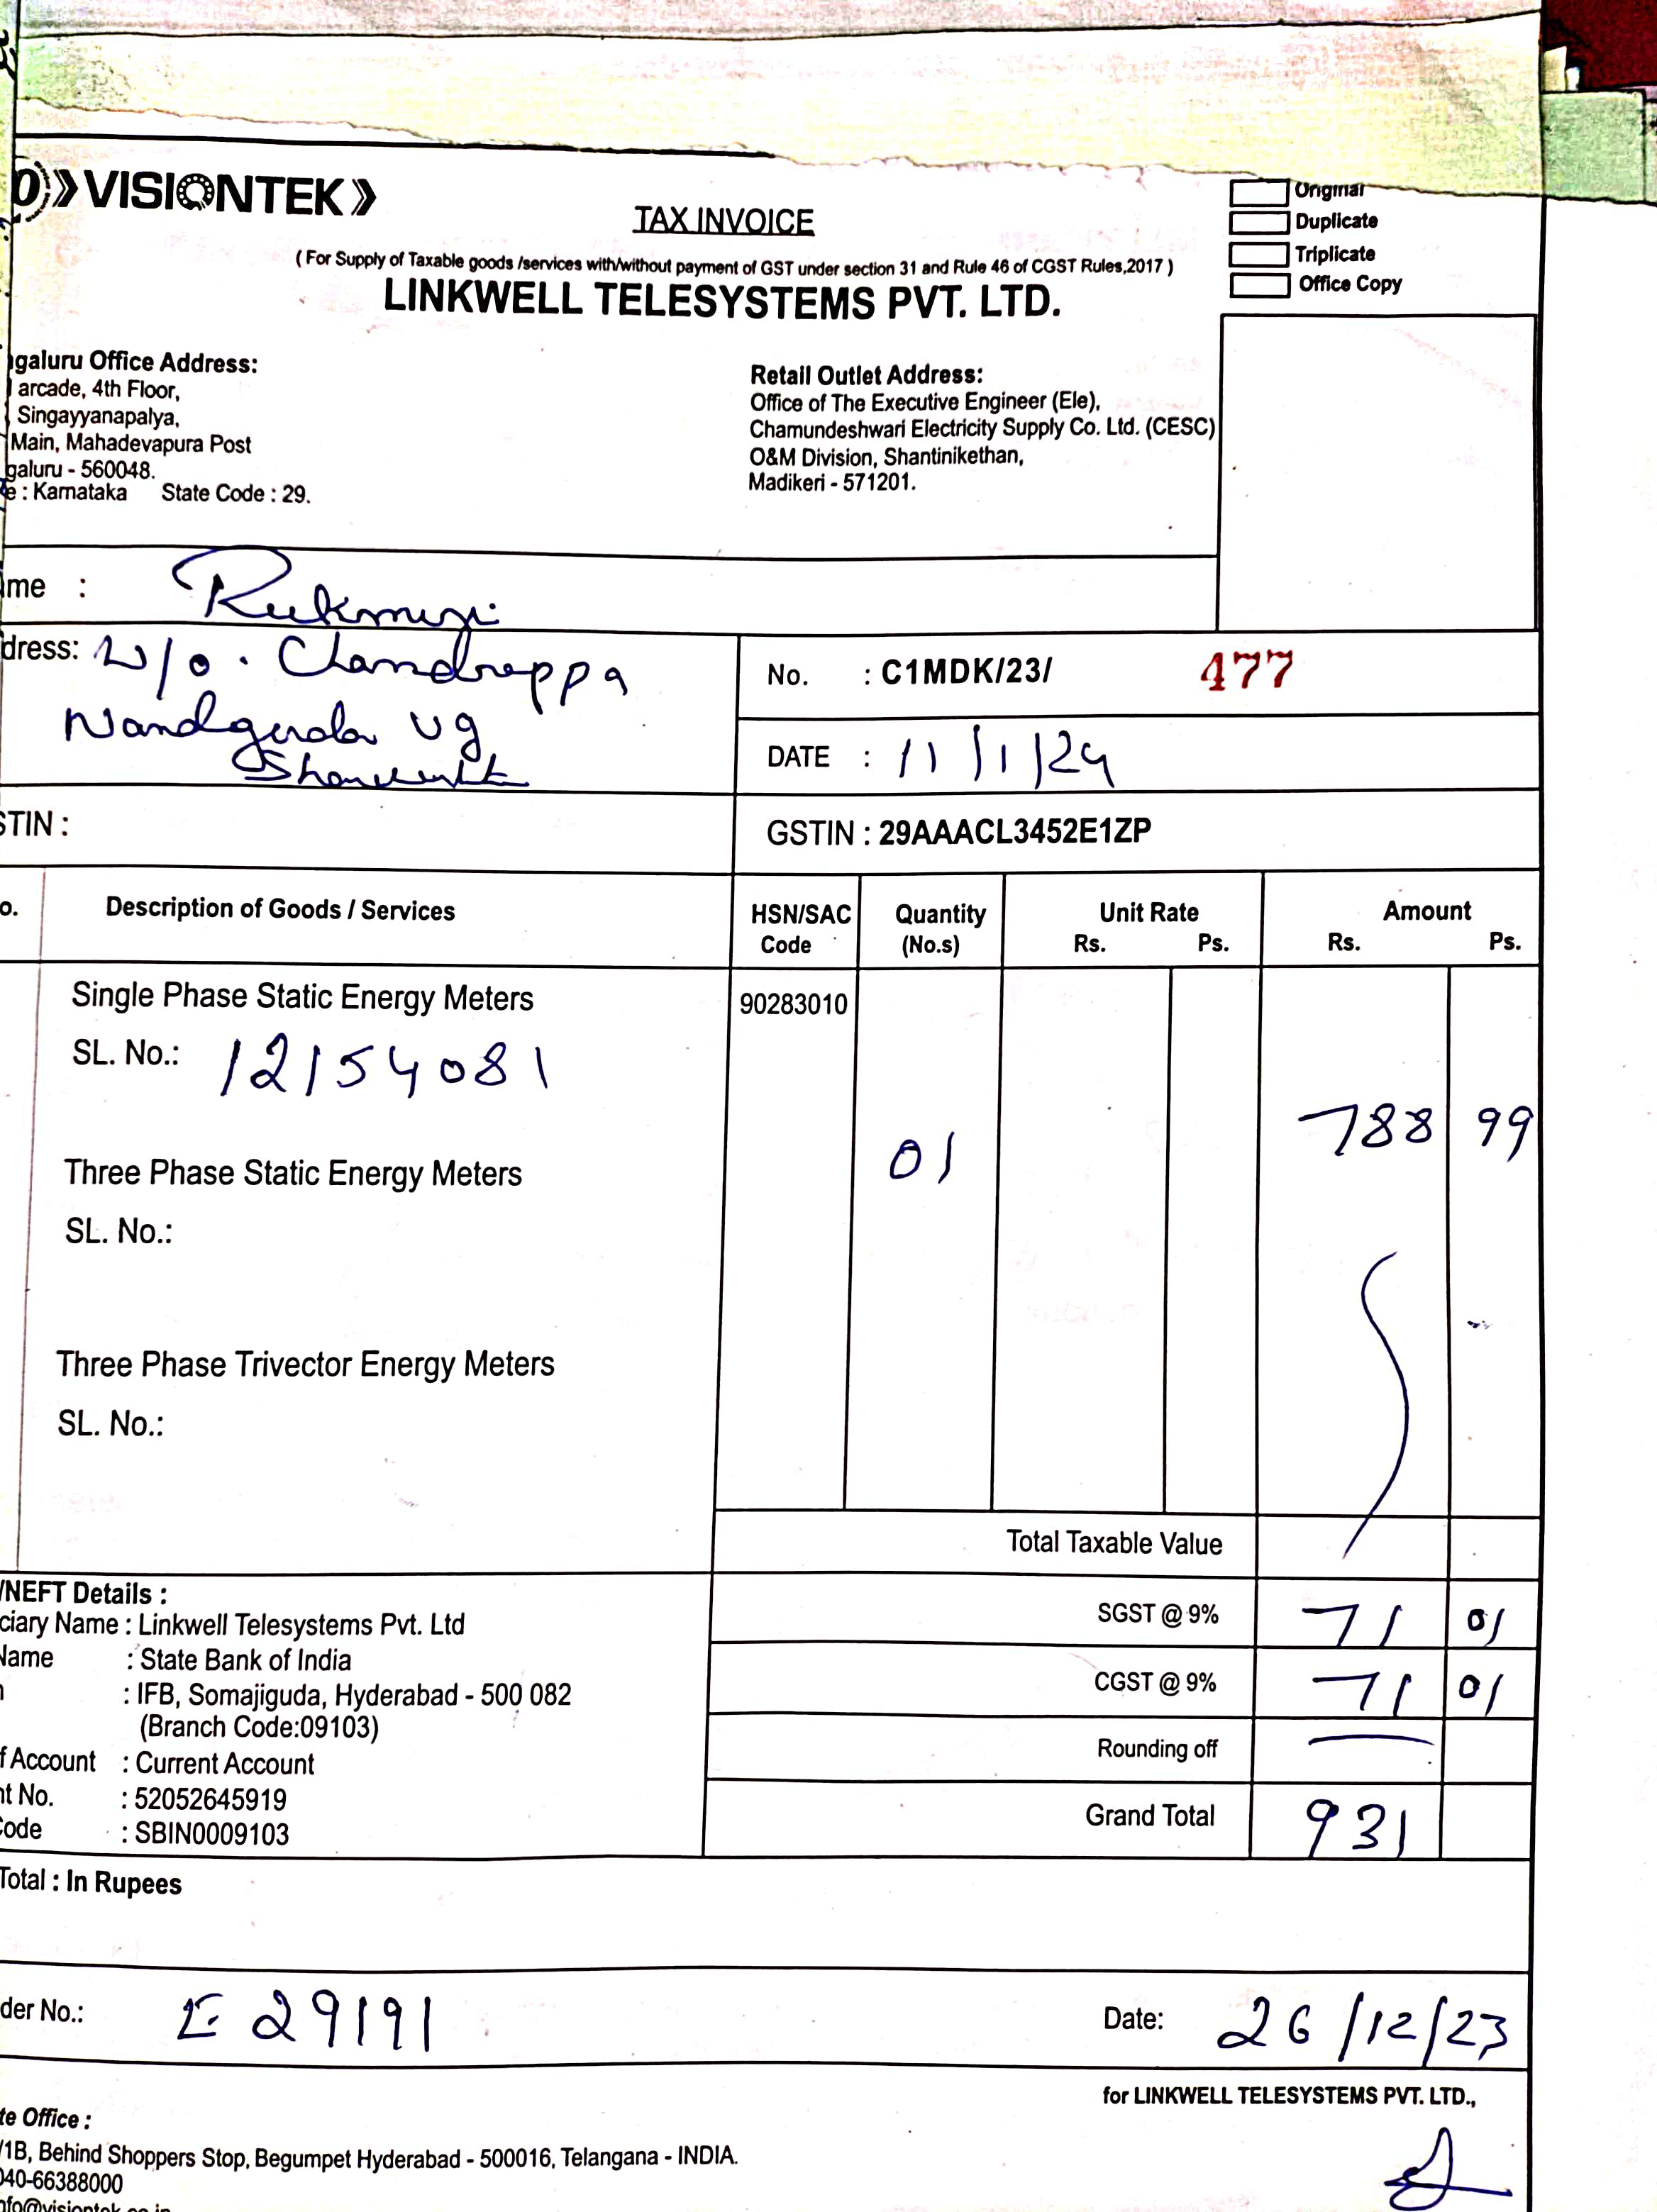 VISIONTEK
TAX INVOICE
Original
Duplicate
Triplicate
Office Copy
( For Supply of Taxable goods /services with/without payment of GST under section 31 and Rule 46 of CGST Rules,2017 )
LINKWELL TELESYSTEMS PVT. LTD.
galuru Office Address:
arcade, 4th Floor,
Singayyanapalya,
Main, Mahadevapura Post
galuru - 560048.
e : Karnataka State Code : 29.
Retail Outlet Address:
Office of The Executive Engineer (Ele),
Chamundeshwari Electricity Supply Co. Ltd. (CESC)
O&M Division, Shantinikethan,
Madikeri - 571201.
me : Rukmini
dress: W/o. Chandrappa
vg
No. : C1MDK/23/ 477
DATE : 11/1/24
STIN :
GSTIN : 29AAACL3452E1ZP
o. Description of Goods / Services HSN/SAC Code Quantity (No.s) Unit Rate Rs. Ps. Amount Rs. Ps.
Single Phase Static Energy Meters 90283010
SL. No.: 12154081
01 788 99
Three Phase Static Energy Meters
SL. No.:
Three Phase Trivector Energy Meters
SL. No.:
Total Taxable Value
SGST @ 9% 71 01
CGST @ 9% 71 01
Rounding off
Grand Total 931
/NEFT Details :
ciary Name : Linkwell Telesystems Pvt. Ltd
Name : State Bank of India
: IFB, Somajiguda, Hyderabad - 500 082
(Branch Code:09103)
f Account : Current Account
nt No. : 52052645919
Code : SBIN0009103
Total : In Rupees
der No.: E 29191 Date: 26/12/23
for LINKWELL TELESYSTEMS PVT. LTD.,
te Office :
/1B, Behind Shoppers Stop, Begumpet Hyderabad - 500016, Telangana - INDIA.
040-66388000
nfo@visiontek.co.in